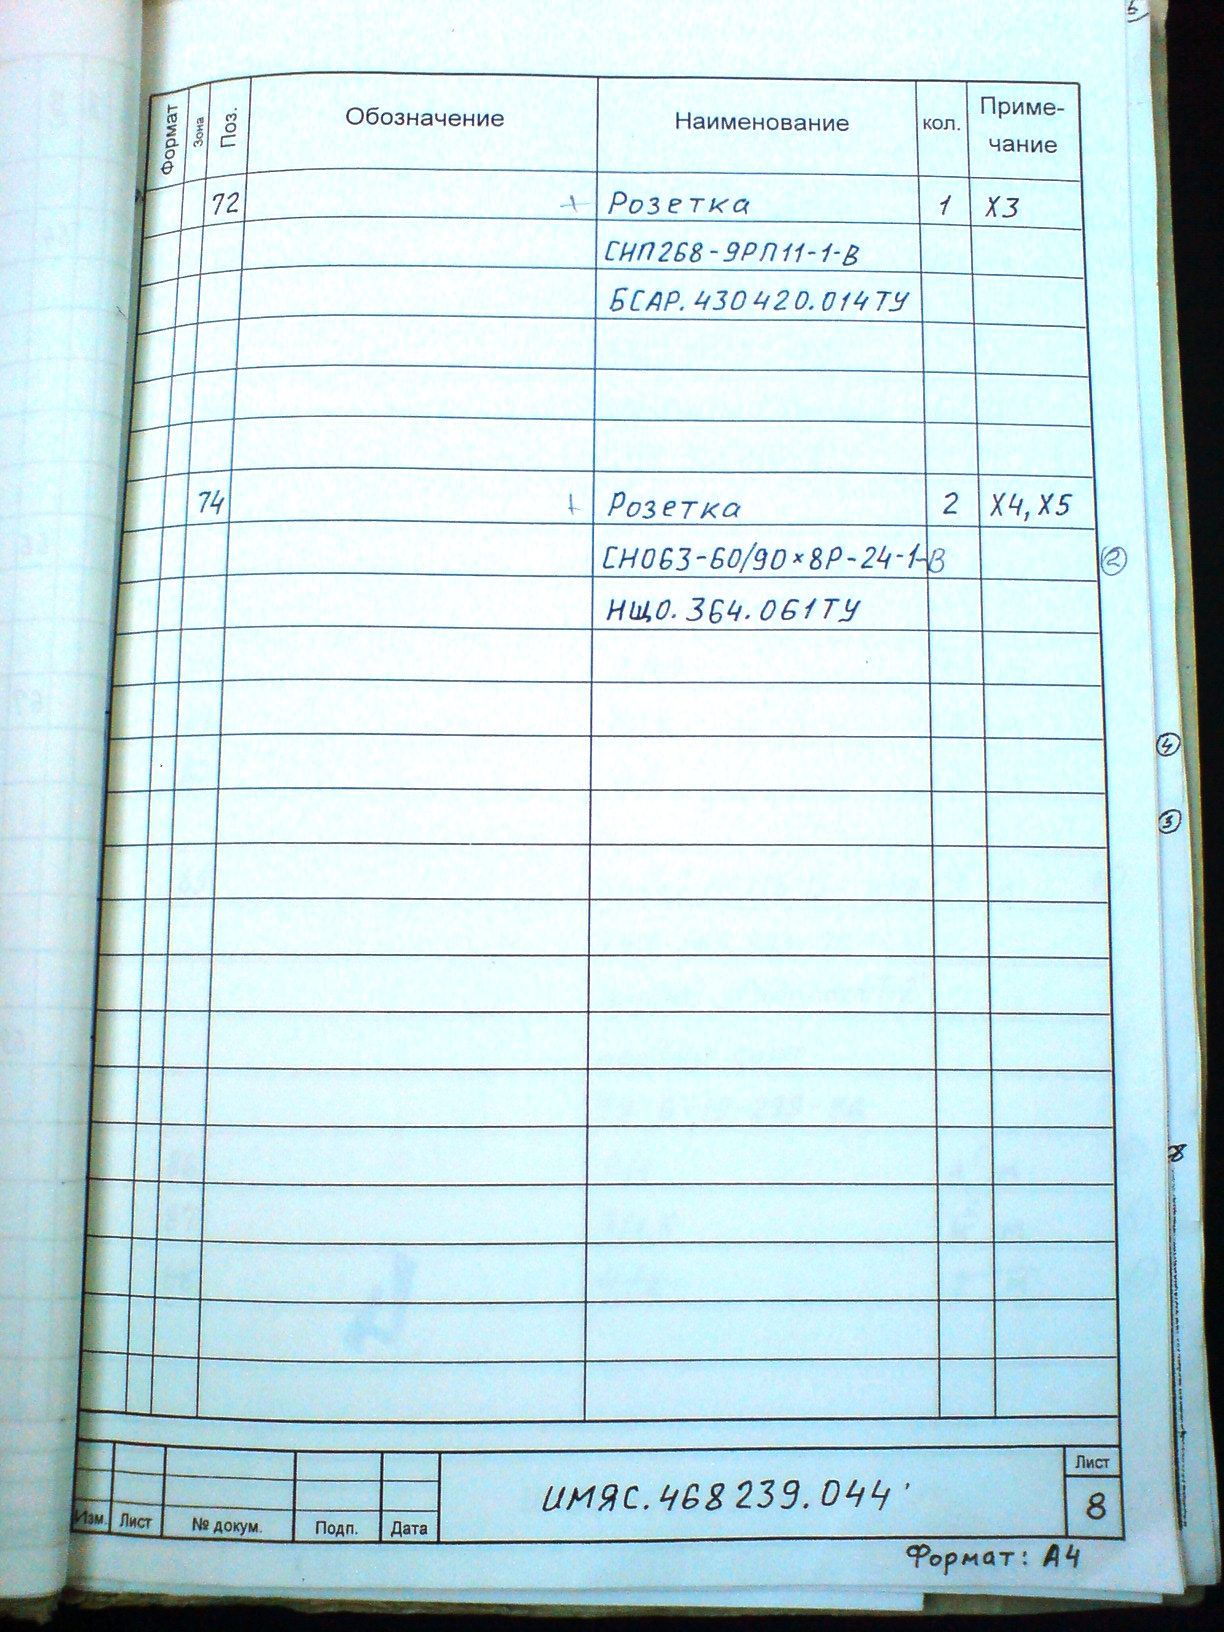 5
Формат Зона Поз. Обозначение Наименование кол. Приме-
чание
72 + Розетка 1 X3
СНП268-9РП11-1-В
БСАР.430420.014ТУ
74 + Розетка 2 X4, X5
СНО63-60/90×8Р-24-1-В 2
НЩ0.364.061ТУ
4
3
8
ИМЯС.468239.044
Лист
8
Изм. Лист № докум. Подп. Дата
Формат: А4